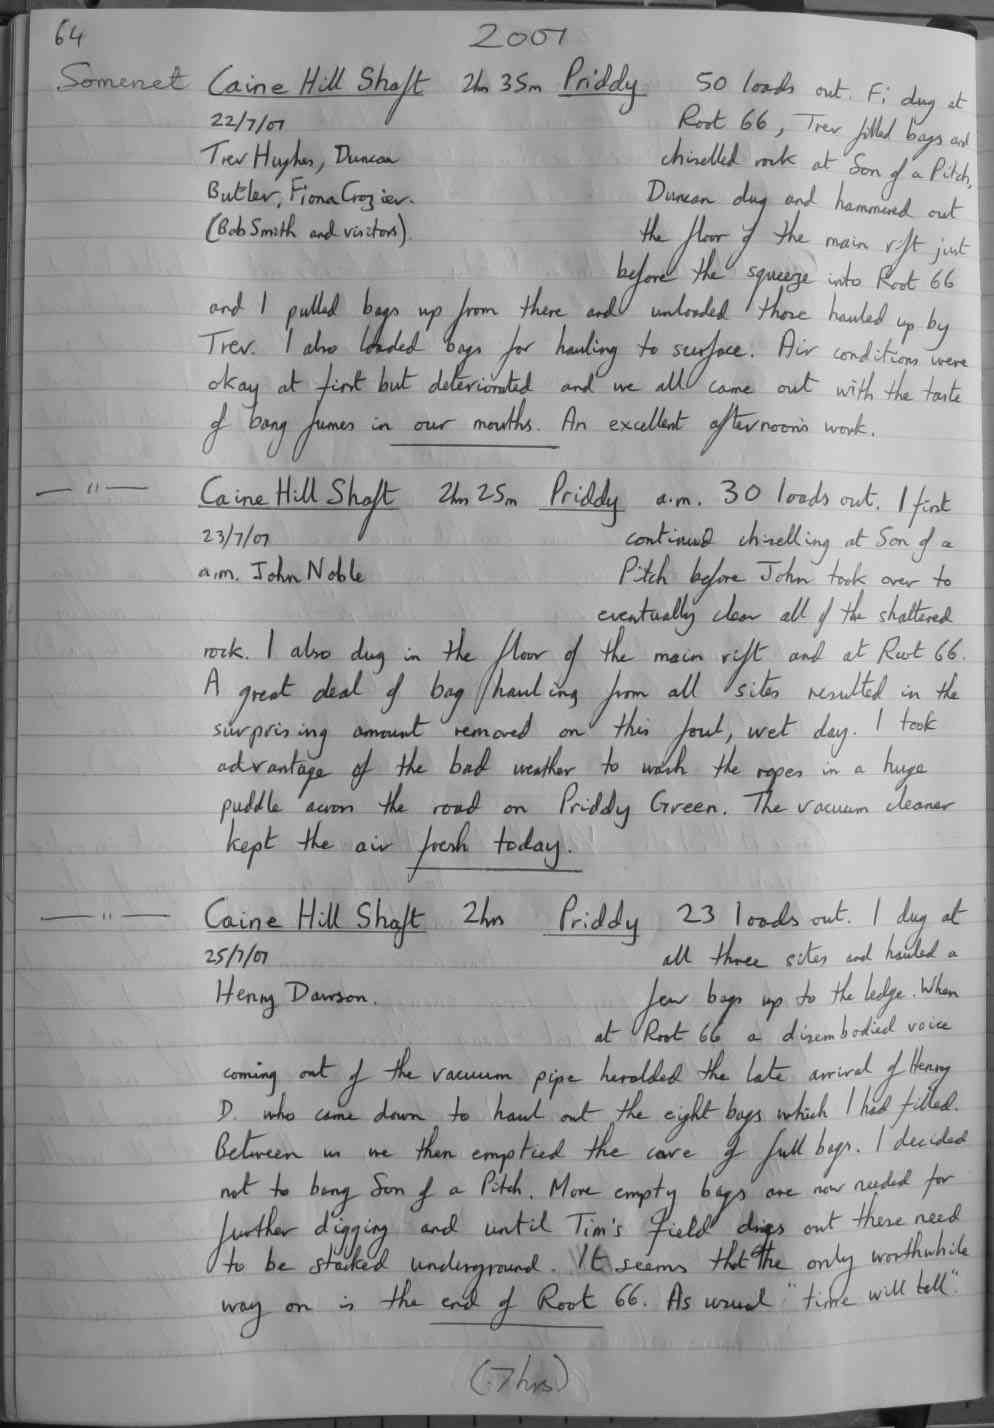 64
2007
Somerset Caine Hill Shaft 2hr 35m Priddy 50 loads out. Fi dug at
22/7/07 Root 66, Trev filled bags and
Trev Hughes, Duncan chiselled rock at Son of a Pitch,
Butler, Fiona Crozier. Duncan dug and hammered out
(Bob Smith and visitors). the floor of the main rift just
before the squeeze into Root 66
and I pulled bags up from there and unloaded those hauled up by
Trev. I also loaded bags for hauling to surface. Air conditions were
okay at first but deteriorated and we all came out with the taste
of bang fumes in our mouths. An excellent afternoon's work.
— " — Caine Hill Shaft 2hr 25m Priddy a.m. 30 loads out. I first
23/7/07 continued chiselling at Son of a
a.m. John Noble Pitch before John took over to
eventually clear all of the shattered
rock. I also dug in the floor of the main rift and at Root 66.
A great deal of bag hauling from all sites resulted in the
surprising amount removed on this foul, wet day. I took
advantage of the bad weather to wash the ropes in a huge
puddle across the road on Priddy Green. The vacuum cleaner
kept the air fresh today.
— " — Caine Hill Shaft 2hrs Priddy 23 loads out. I dug at
25/7/07 all three sites and hauled a
Henry Dawson. few bags up to the ledge. When
at Root 66 a disembodied voice
coming out of the vacuum pipe heralded the late arrival of Henry
D. who came down to haul out the eight bags which I had filled.
Between us we then emptied the cave of full bags. I decided
not to bang Son of a Pitch. More empty bags are now needed for
further digging and until Tim's field dries out these need
to be stacked underground. It seems that the only worthwhile
way on is the end of Root 66. As usual "time will tell".
(7hrs)